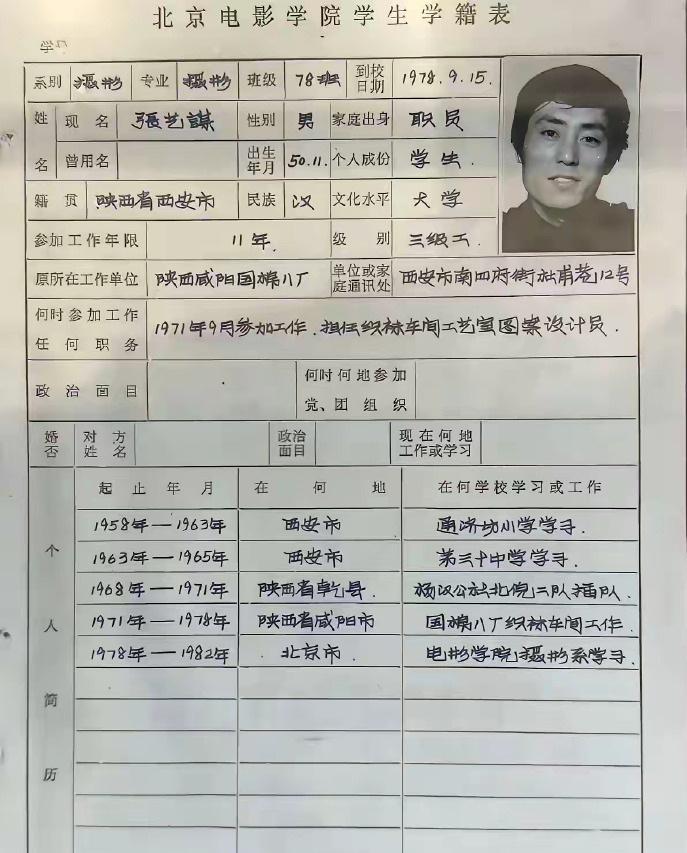 北京电影学院学生学籍表
系别 摄影 专业 摄影 班级 78班 到校日期 1978.9.15.
姓名 现名 張艺謀 性别 男 家庭出身 职员
曾用名 出生年月 50.11. 个人成份 学生
籍贯 陕西省西安市 民族 汉 文化水平 大学
参加工作年限 11年. 级别 三级工.
原所在工作单位 陕西咸阳国棉八厂 单位或家庭通讯处 西安市南四府街社甫巷112号
何时参加工作任何职务 1971年9月参加工作.担任织袜车间工艺室图案设计员.
政治面目 何时何地参加党、团组织
婚否 对方姓名 政治面目 现在何地工作或学习
个人简历 起止年月 在何地 在何学校学习或工作
1958年—1963年 西安市 通济坊小学学习.
1963年—1965年 西安市 第三十中学学习.
1968年—1971年 陕西省乾县. 杨汉公社北倪二队插队.
1971年—1978年 陕西省咸阳市 国棉八厂织袜车间工作.
1978年—1982年 北京市. 电影学院摄影系学习.